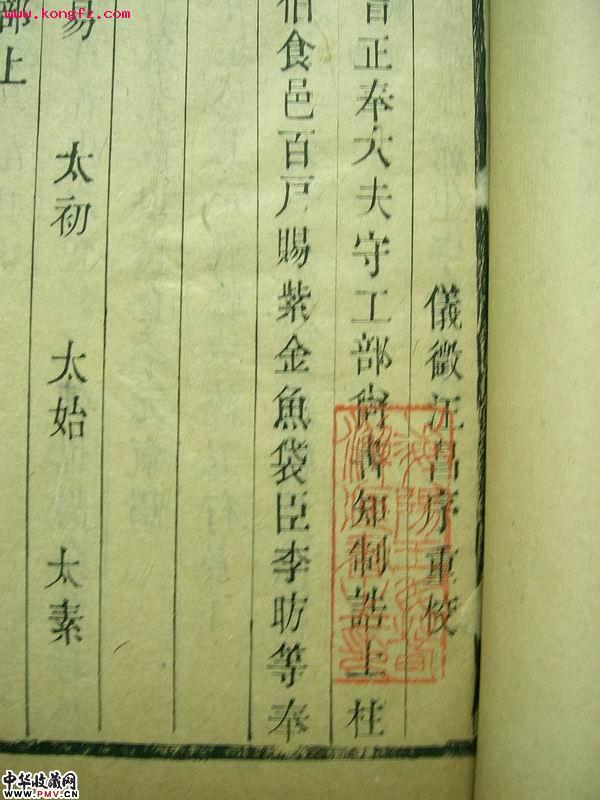 www.kongfz.com
儀徵汪昌序重校
旨正奉大夫守工部尚書知制誥上柱
伯食邑百戸賜紫金魚袋臣李昉等奉
易 太初 太始 太素
部上
中华收藏网
www.PMV.CN